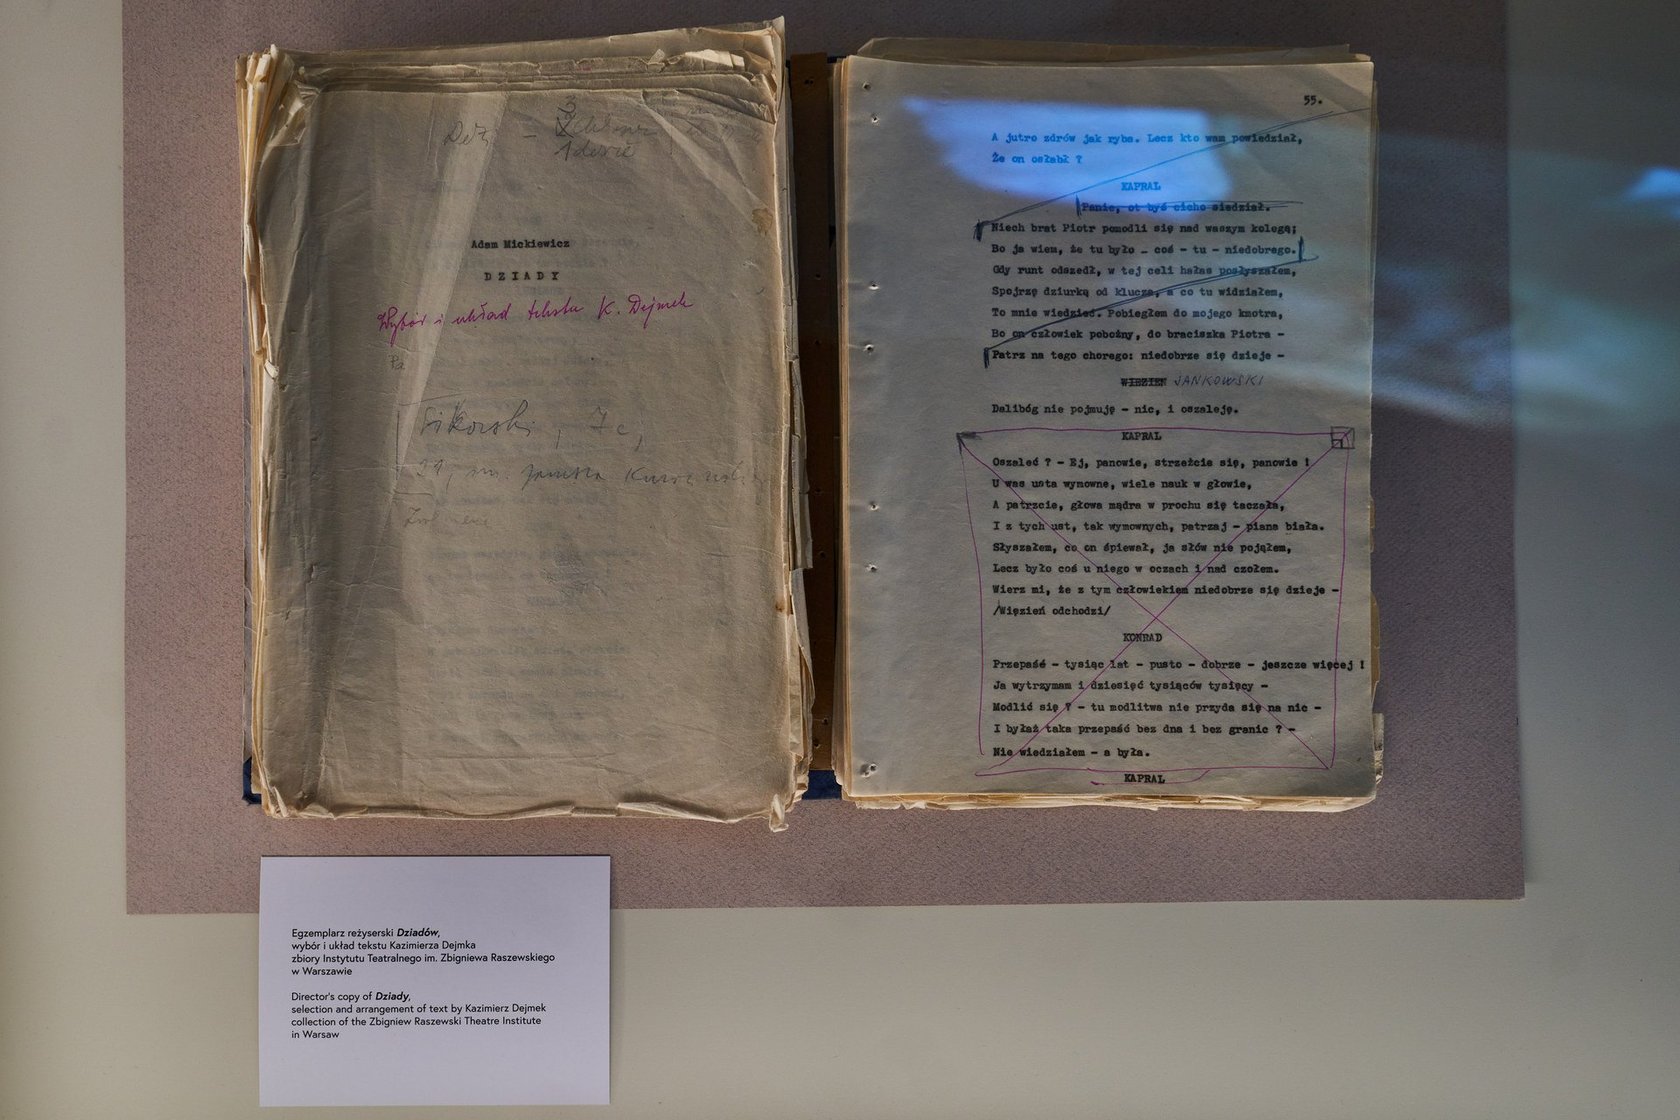 Adam Mickiewicz
DZIADY
Wybór i układ tekstu K. Dejmek
Sikorski, 7c,
55.
A jutro zdrów jak ryba. Lecz kto wam powiedział,
Że on osłabł ?
KAPRAL
Panie, ot byś cicho siedział.
Niech brat Piotr pomodli się nad waszym kolegą;
Bo ja wiem, że tu było – coś – tu – niedobrego.
Gdy runt odszedł, w tej celi hałas posłyszałem,
Spojrzę dziurką od klucza, a co tu widziałem,
To mnie wiedzieć. Pobiegłem do mojego kmotra,
Bo on człowiek pobożny, do braciszka Piotra –
Patrz na tego chorego: niedobrze się dzieje –
WIĘZIEŃ JANKOWSKI
Dalibóg nie pojmuję – nic, i oszaleję.
KAPRAL
Oszaleć ? – Ej, panowie, strzeżcie się, panowie !
U was usta wymowne, wiele nauk w głowie,
A patrzcie, głowa mądra w prochu się taczała,
I z tych ust, tak wymownych, patrzaj – piana biała.
Słyszałem, co on śpiewał, ja słów nie pojąłem,
Lecz było coś u niego w oczach i nad czołem.
Wierz mi, że z tym człowiekiem niedobrze się dzieje –
/Więzień odchodzi/
KONRAD
Przepaść – tysiąc lat – pusto – dobrze – jeszcze więcej !
Ja wytrzymam i dziesięć tysiąców tysięcy –
Modlić się ? – tu modlitwa nie przyda się na nic –
I byłaż taka przepaść bez dna i bez granic ? –
Nie wiedziałem – a była.
KAPRAL
Egzemplarz reżyserski Dziadów,
wybór i układ tekstu Kazimierza Dejmka
zbiory Instytutu Teatralnego im. Zbigniewa Raszewskiego
w Warszawie
Director's copy of Dziady,
selection and arrangement of text by Kazimierz Dejmek
collection of the Zbigniew Raszewski Theatre Institute
in Warsaw